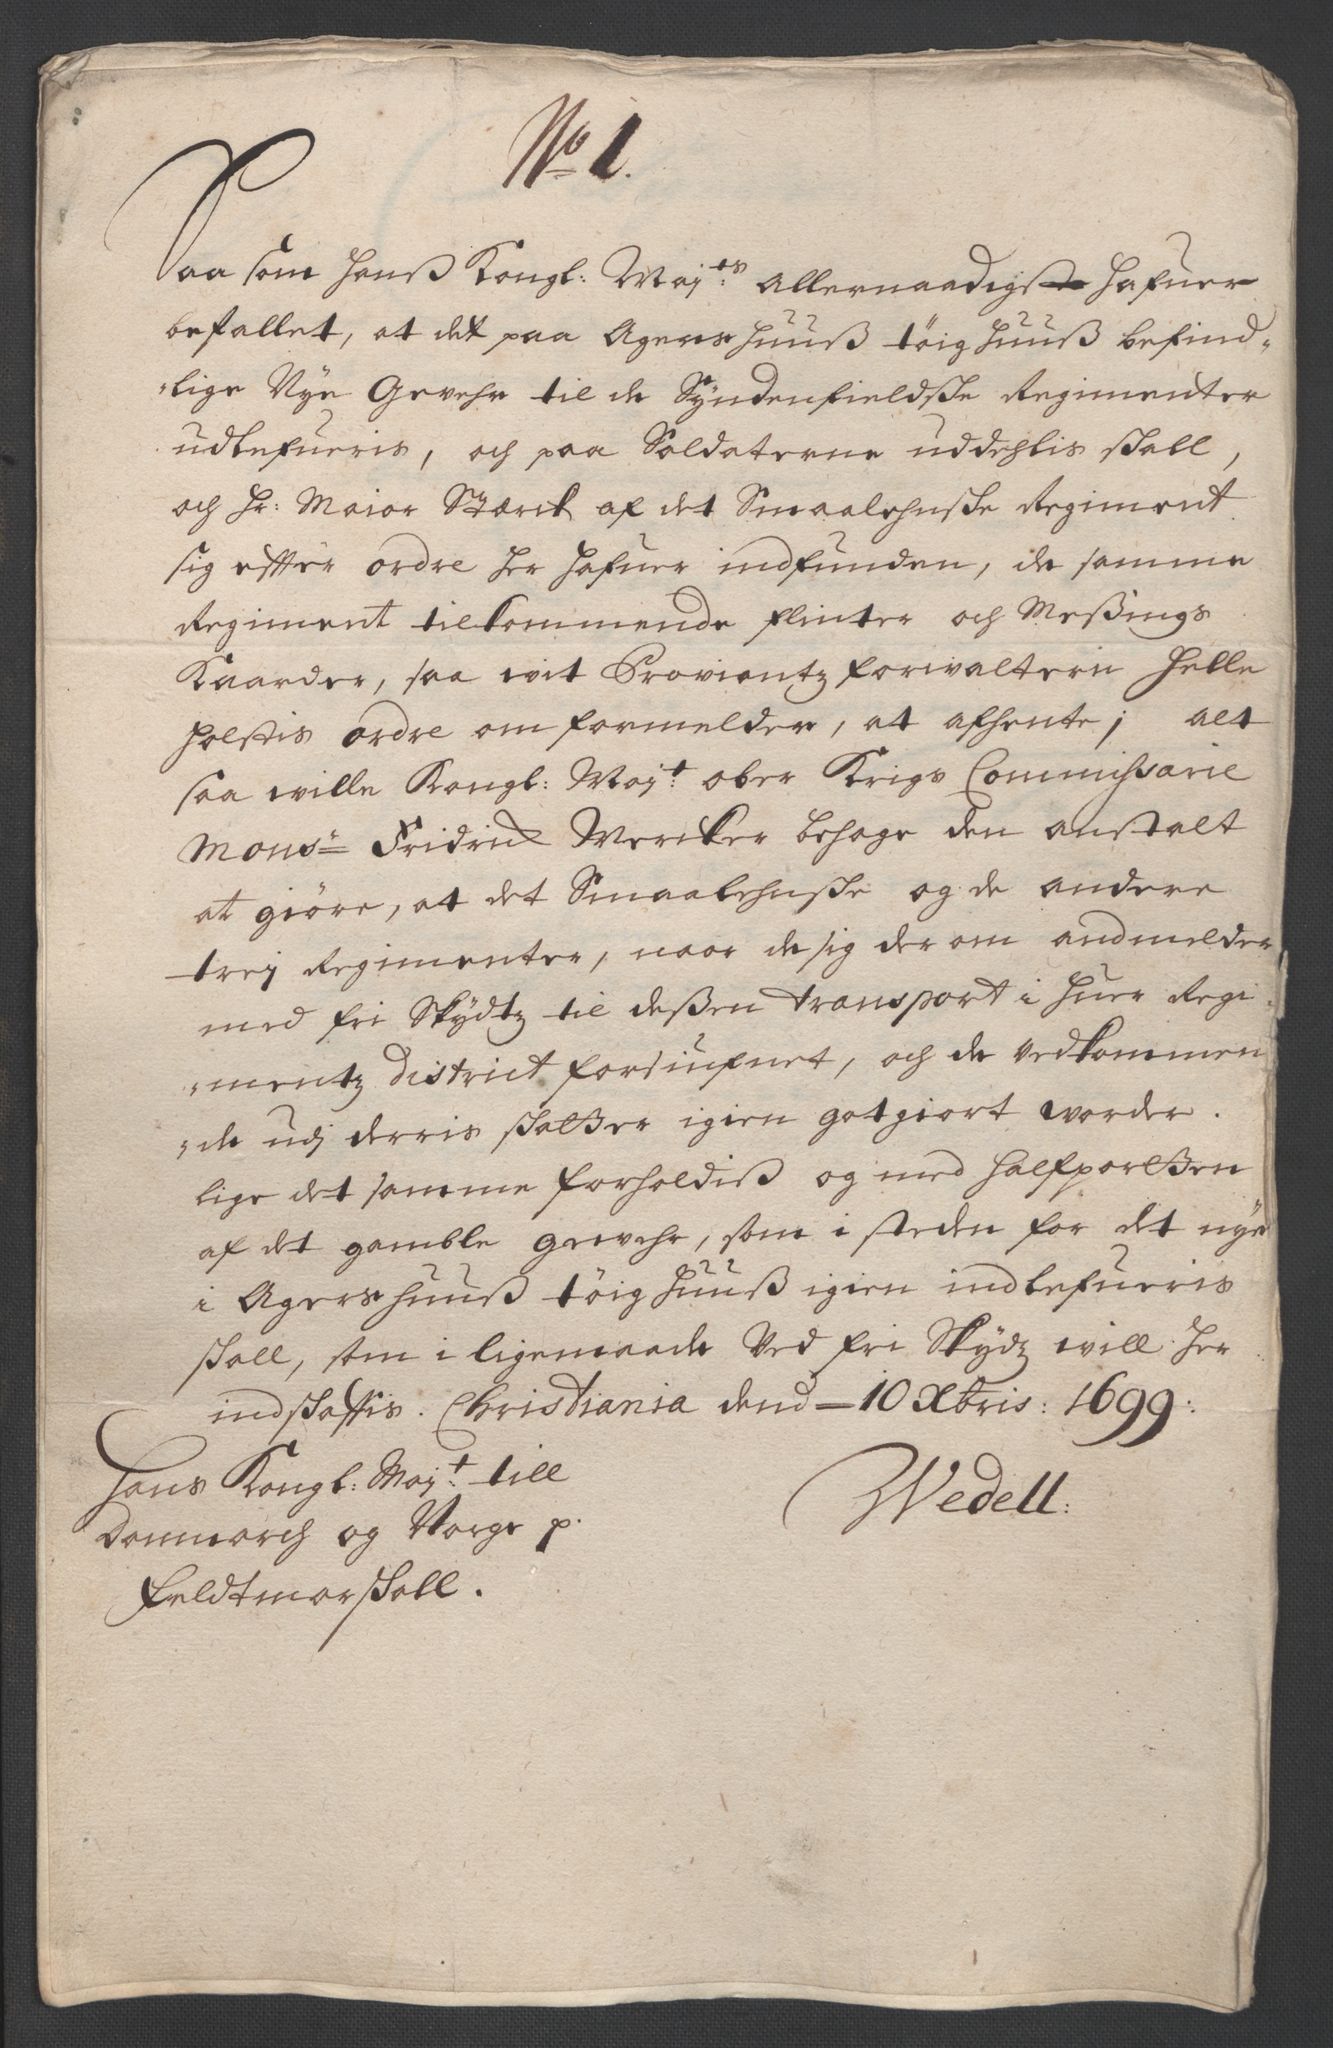 No 1.
Saa som Hanß Kongl: Maj:ts Allernaadigst hafuer
befallet, at det paa Agershuuß töighuuß befind-
lige Nye Gevehr til de Syndenfieldske Regimenter
udlefueris, och paa Soldaterne uddehlis skall,
och Hr: Maior Stærck af det Smaalehnske Regiment
sig effter ordre her hafuer indfunden, de samme
Regiment tilkommende flinter och Meßings
Kaarder, saa wit Proviantz forwalterin Helle
Holstis ordre om formelder, at afhente; alt
saa wille Kongl: Maj:t ober Krigs Commissarie
Monsr Fridrick Wercker behage den anstalt
at giöre, at det Smaalehnske og de andere
trej Regimenter, naar de sig der om andmelder
med fri Skydtz til deßen transport i huer Regi-
mentz district forsiufnet, och de vedkommen
de udj derris skatter igien gotgiort worder.
lige det samme forholdiß og med halfparten
af det gamble gewehr, som i steden for det nye
i Agershuuß töighuuß igien indlefueris
skall, som i ligemaade Ved fri Skydz will her
indskaffis. Christiania dend 10 Xbris: 1699.
Hans Kongl: Maj:t till
Danmarch og Norge p.
feldtmarskall.
Wedell: